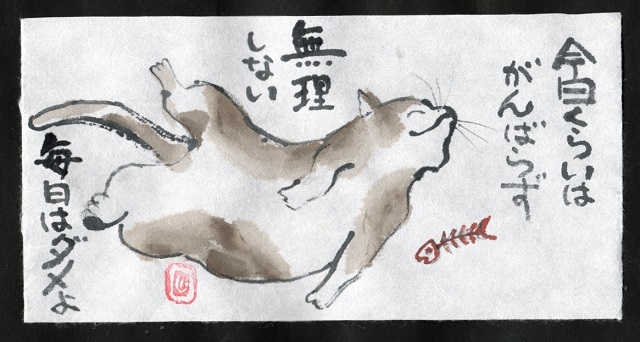 今日くらいは
がんばらず
無理
しない
毎日はダメよ